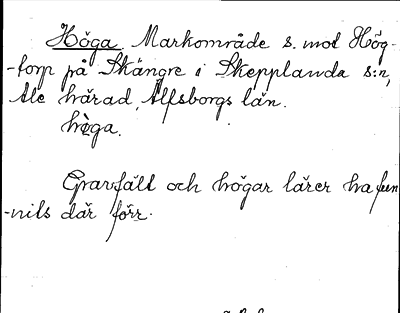 Höga. Markområde s. mot Hög-
-torp på Skängre i Skepplanda s:n,
Ale härad, Älfsborgs län.
hὼga.
Gravfält och högar lärer ha fun
-nits där förr.